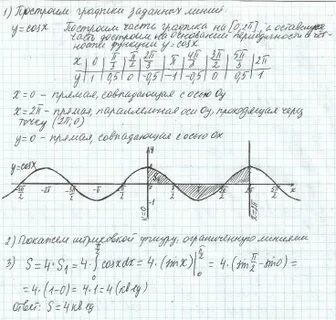 1) Построим графики заданных линий
y=cosx Построим часть графика на [0;2π], а оставшуюся
часть достроим на основании периодичности и чет-
ности функции y=cosx
x | 0 | π/3 | π/2 | 2π/3 | π | 4π/3 | 3π/2 | 5π/3 | 2π
y | 1 | 0,5 | 0 | -0,5 | -1 | -0,5 | 0 | 0,5 | 1
x=0 - прямая, совпадающая с осью Oy
x=2π - прямая, параллельная оси Oy, проходящая через
точку (2π;0)
y=0 - прямая, совпадающая с осью Ox
y=cosx
S₁
x=0
x=2π
x
2) Покажем штриховкой фигуру, ограниченную линиями
3) S=4·S₁=4·∫cosxdx=4·(sinx)|=4·(sin π/2-sin0)=
=4·(1-0)=4·1=4(кв ед)
Ответ: S=4кв ед